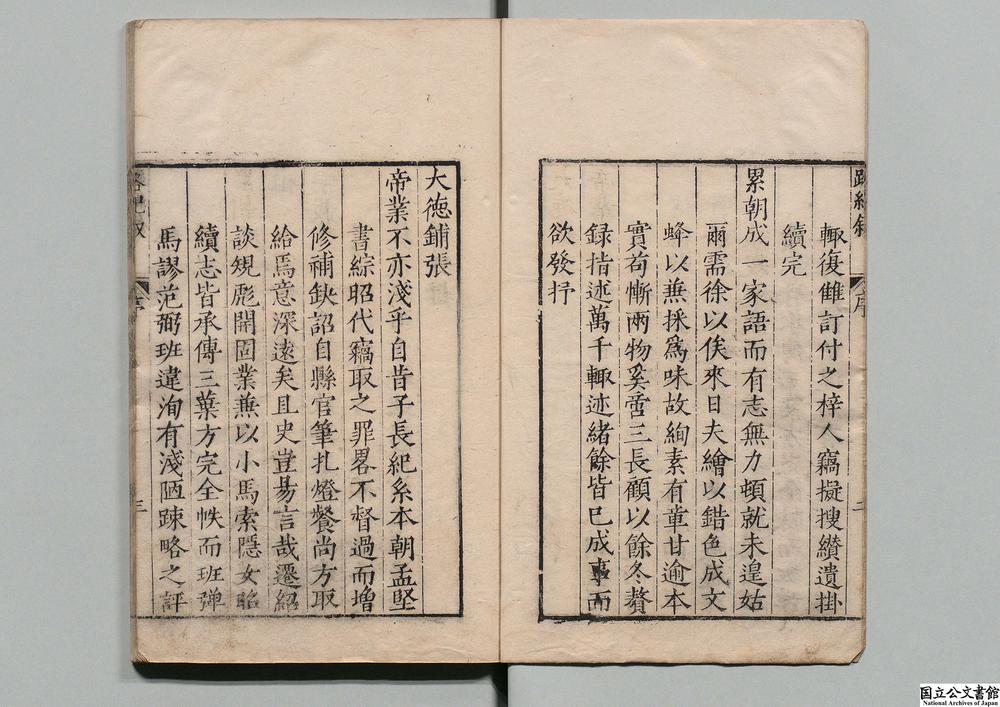 輙復雔訂付之梓人竊擬搜纉遺掛
續完
累朝成一家語而有志無力頓就未遑姑
爾需徐以俟來日夫繪以錯色成文
蜂以兼採爲味故絢素有章甘逾本
實苟慚兩物奚啻三長顧以餘冬贅
録指述萬千輙述緒餘皆已成事而
欲發抒
大德鋪張
帝業不亦淺乎自昔子長紀系本朝孟堅
書綜昭代竊取之罪畧不督過而增
修補缺詔自縣官筆扎燈餐尚方取
給爲意深遠矣且史豈易言哉遷紹
談規彪開固業兼以小馬索隱女昭
續志皆承傳三葉方完全帙而班殫
馬謬范弼班違洵有淺陋踈略之評
序
二
三
国立公文書館
National Archives of Japan